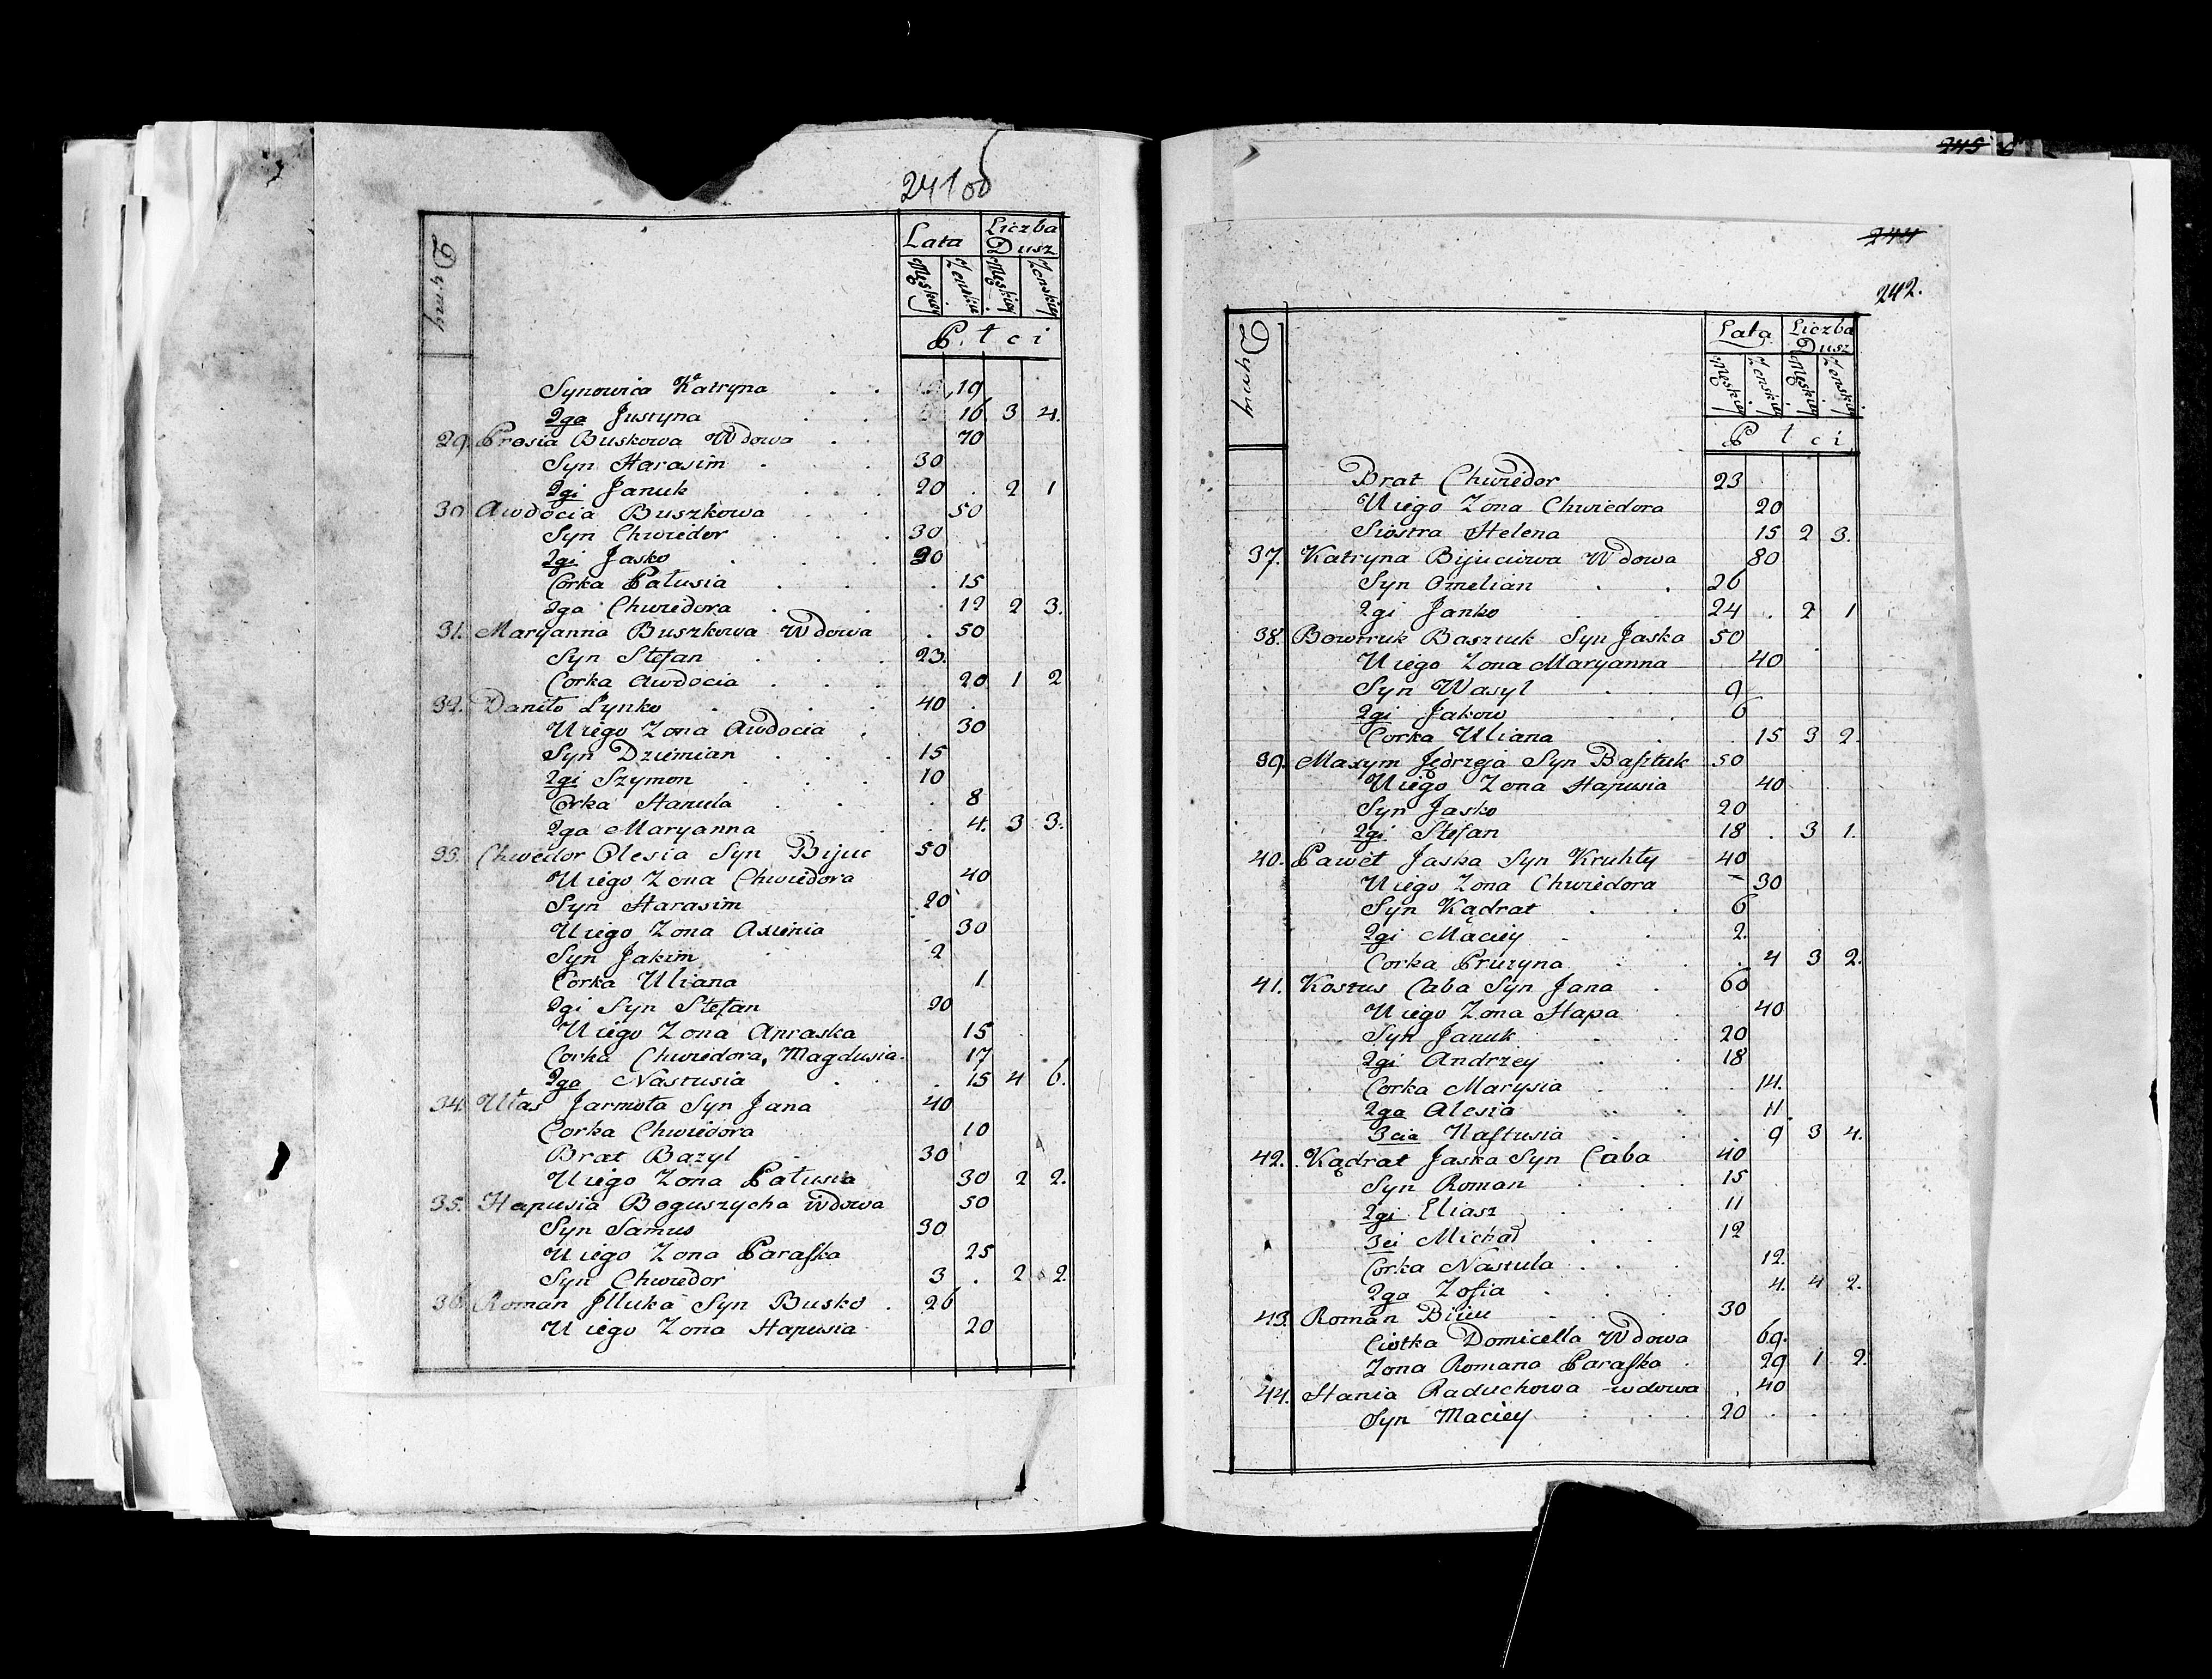 241 об
Dymy
Lata Liczba Dusz
Męskiey Zenskiey Męskiey Zenskiey
Płci
Synowica Katryna 19
2ga Justyna 16 3 4.
29. Prosia Buskowa Wdowa 70
Syn Harasim 30
2gi Januk 20 2 1
30 Awdocia Buszkowa 50
Syn Chwiedor 30
2gi Jasko 20
Corka Patusia 15
2ga Chwiedora 12 2 3.
31. Maryanna Buszkowa Wdowa 50
Syn Stefan 23.
Corka Awdocia 20 1 2
32. Daniło Lynko 40
U iego Zona Awdocia 30
Syn Dziemian 15
2gi Szymon 10
Corka Hanula 8
2ga Maryanna 4. 3 3.
33. Chwedor Olesia Syn Bijuc 50
U iego Zona Chwiedora 40
Syn Harasim 20
U iego Zona Axienia 30
Syn Jakim 2
Corka Uliana 1
2gi Syn Stefan 20
U iego Zona Apraska 15
Corka Chwiedora, Magdusia 17
2ga Nastusia 15 4 6.
34. Ułas Jarmoła Syn Jana 40
Corka Chwiedora 10
Brat Bazyl 30
U iego Zona Patusia 30 2 2.
35. Hapusia Boguszycha wdowa 50
Syn Samus 30
U iego Zona Paraska 25
Syn Chwiedor 3 2 2.
36. Roman Illuka Syn Busko 26
U iego Zona Hapusia 20
245
244
242.
Dymy
Lata Liczba Dusz
Męskiey Zenskiey Męskiey Zenskiey
Płci
Brat Chwiedor 23
U iego Zona Chwiedora 20
Siostra Helena 15 2 3.
37. Katryna Bijuciowa Wdowa 80
Syn Omelian 26
2gi Janko 24 2 1
38. Basziuk Syn Jaska 50
U iego Zona Maryanna 40
Syn Wasyl 9
2gi Jakow 6
Corka Uliana 15 3 2.
39. Maxym Jędrzeja Syn Basztuk 50
U iego Zona Hapusia 40
Syn Jasko 20
2gi Stefan 18 3 1.
40. Paweł Jaska Syn Kruhły 40
U iego Zona Chwiedora 30
Syn Kądrat 6
2gi Maciey 2.
Corka Pruzyna 4 3 2.
41. Kostus Caba Syn Jana 60
U iego Zona Hapa 40
Syn Januk 20
2gi Andrzey 18
Corka Marysia 14.
2ga Alesia 11
3cia Nastusia 9 3 4.
42. Kądrat Jaska Syn Caba 40
Syn Roman 15
2gi Eliasz 11
3ci Michał 12
Corka Nastula 12.
2ga Zofia 4. 4 2.
43. Roman Bijuc 30
Ciotka Domicella Wdowa 69.
Zona Romana Paraska 29 1 2.
44. Hania Raduchowa wdowa 40
Syn Maciey 20